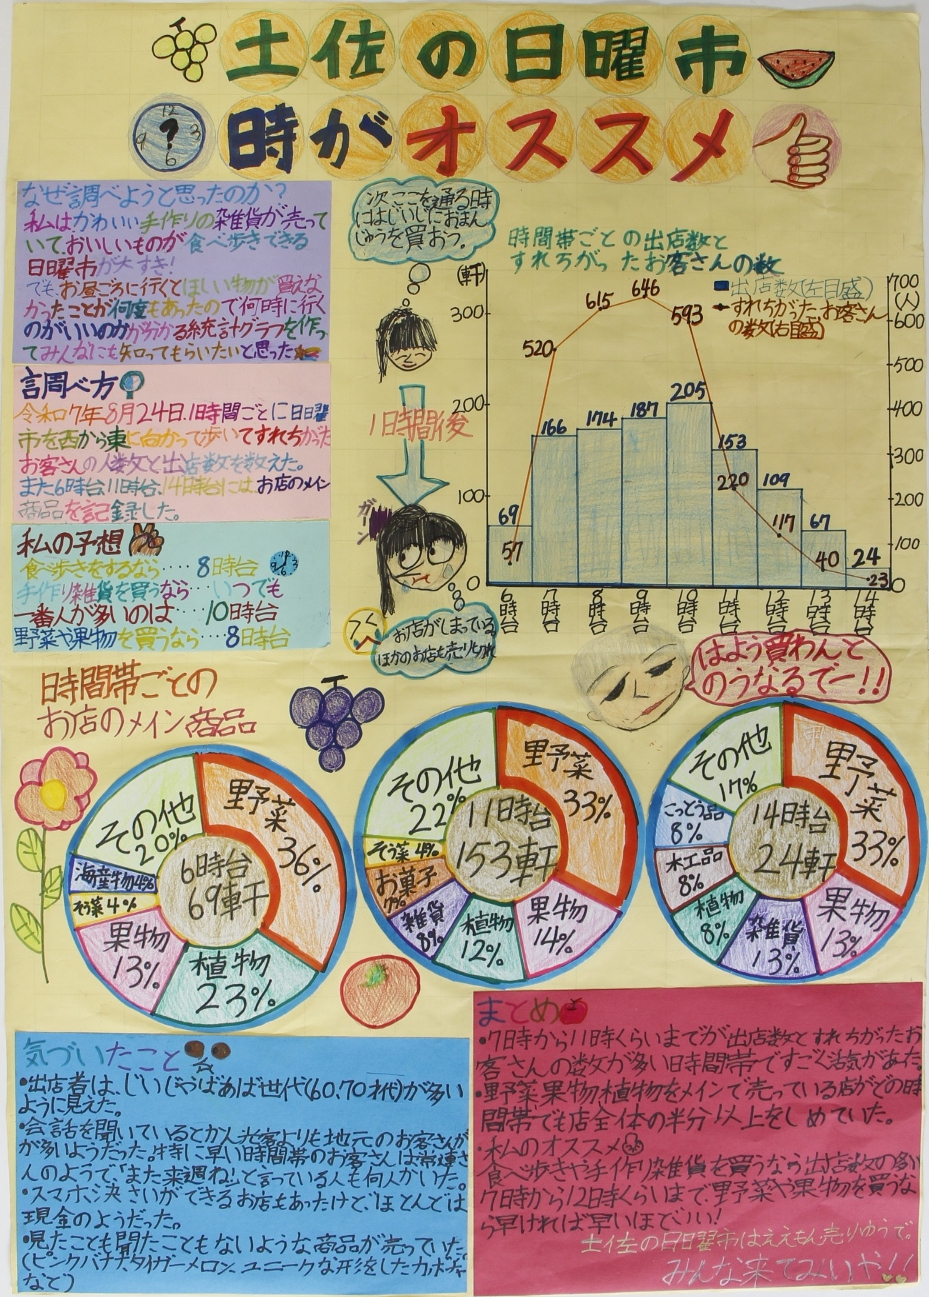 土佐の日曜市
12 3 6 9 ?
時がオススメ
なぜ調べようと思ったのか?
私はかわいい手作りの雑貨が売って
いておいしいものが食べ歩きできる
日曜市が大すき!
でも、お昼ごろに行くとほしい物が買えな
かったことが何度もあったので何時に行く
のがいいのかが分かる統計グラフを作っ
てみんなにも知ってもらいたいと思った
調べ方
令和7年8月24日、1時間ごとに日曜
市を西から東に向かって歩いてすれちがった
お客さんの人数と出店数を数えた。
また6時台、11時台、14時台にはお店のメイン
商品を記録した。
私の予想
食べ歩きをするなら・・・・8時台
手作り雑貨を買うなら・・・いつでも
一番人が多いのは・・・・10時台
野菜や果物を買うなら・・・8時台
次、ここを通る時
にはじいじにおまん
じゅうを買おっ。
1時間後
ガーン
お店がしまっている
ほかのお店も売り切れ
時間帯ごとの出店数と
すれちがったお客さんの数
(軒)
300
200
100
0
700
(人)
600
500
400
300
200
100
0
出店数(左目盛)
すれちがったお客さん
の数(右目盛)
520 615 646 593 220 117 40 23
57
69 166 174 187 205 153 109 67 24
6時台 7時台 8時台 9時台 10時台 11時台 12時台 13時台 14時台
はよう買わんと
のうなるでー!!
時間帯ごとの
お店のメイン商品
6時台
69軒
野菜
36%
植物
23%
果物
13%
そう菜4%
海産物4%
その他
20%
11時台
153軒
野菜
33%
果物
14%
植物
12%
雑貨
8%
お菓子
7%
そう菜4%
その他
22%
14時台
24軒
野菜
33%
果物
13%
雑貨
13%
植物
8%
木工品
8%
こっとう品
8%
その他
17%
気づいたこと
・出店者は、じいじやばあば世代(60、70才代)が多い
ように見えた。
・会話を聞いているとかん光客よりも地元のお客さんが
が多いようだった。特に早い時間帯のお客さんは常連さ
んのようで「また来週ね!」と言っている人も何人かいた。
・スマホ決さいができるお店もあったけど、ほとんどは
現金のようだった。
・見たことも聞いたこともないような商品が売っていた。
(ピンクバナナ、タイガーメロン、ユニークな形をしたカボチャ
など)
まとめ
・7時から11時くらいまでが出店数とすれちがったお
客さんの数が多い時間帯ですごく活気があった。
・野菜、果物、植物をメインで売っている店がどの時
間帯でも店全体の半分以上をしめていた。
・私のオススメ
食べ歩きや手作り雑貨を買うなら出店数の多い
7時から12時くらいまで、野菜や果物を買うな
ら早ければ早いほどいい!
土佐の日曜市はええもん売りゆうで。
みんな来てみいや!!